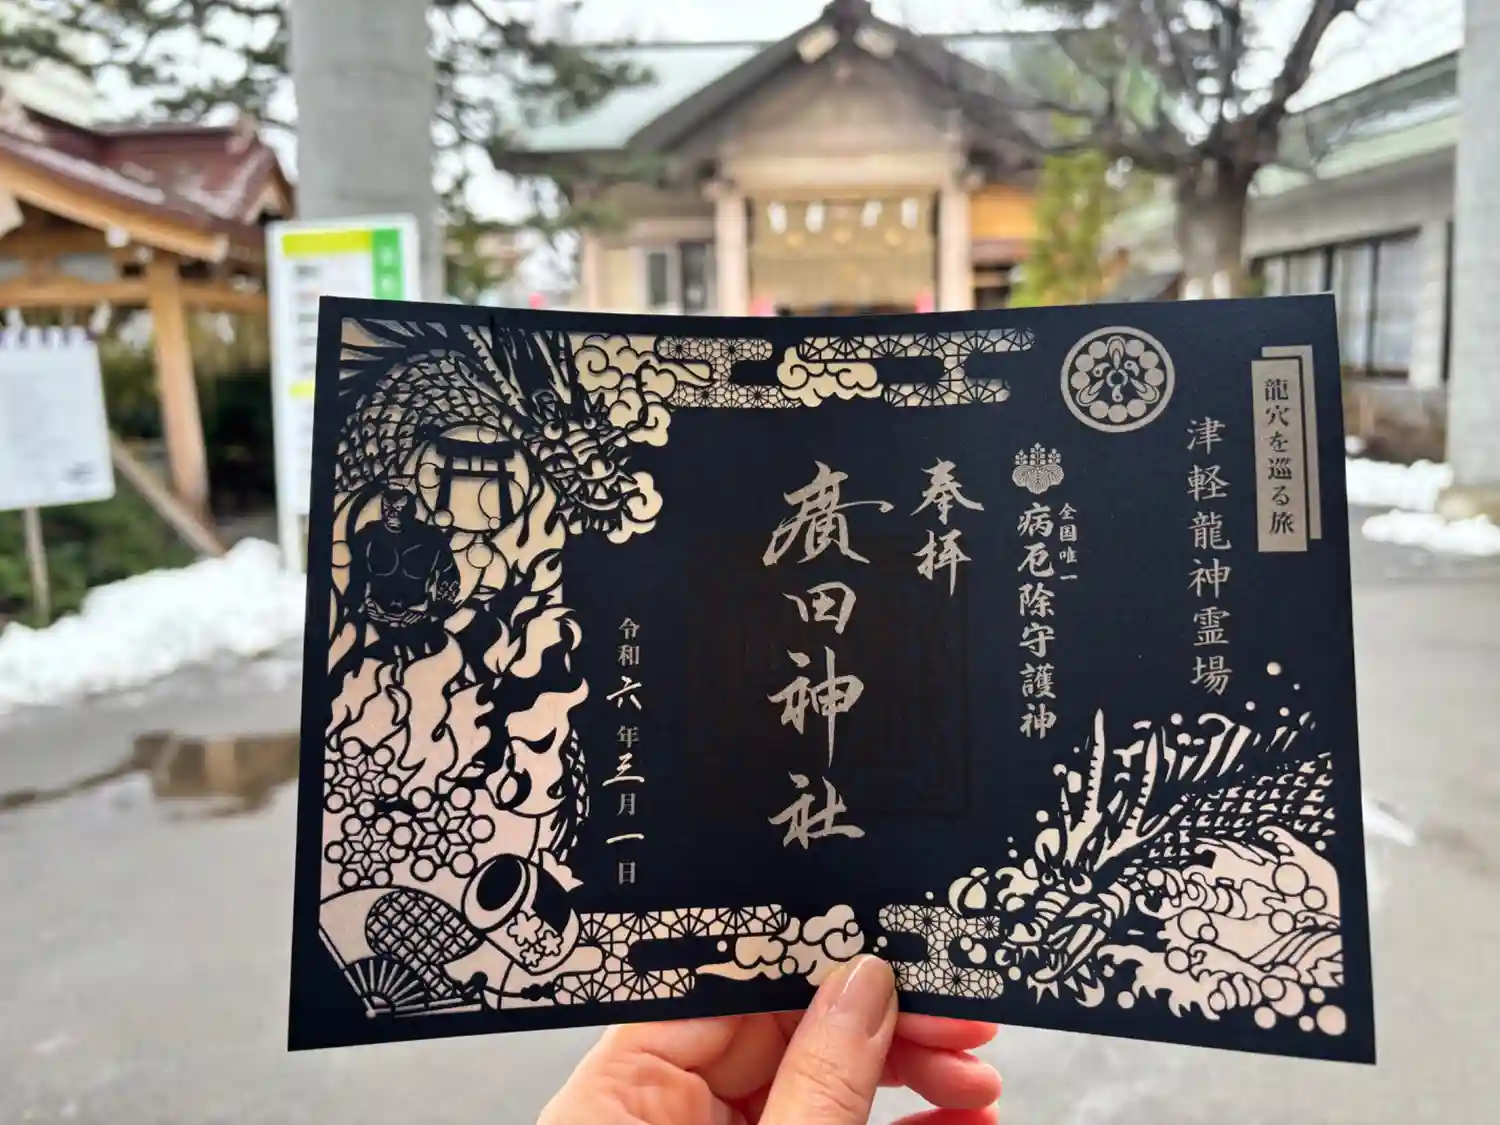 龍穴を巡る旅
津軽龍神霊場
全国唯一
病厄除守護神
奉拝
廣田神社
令和六年三月一日